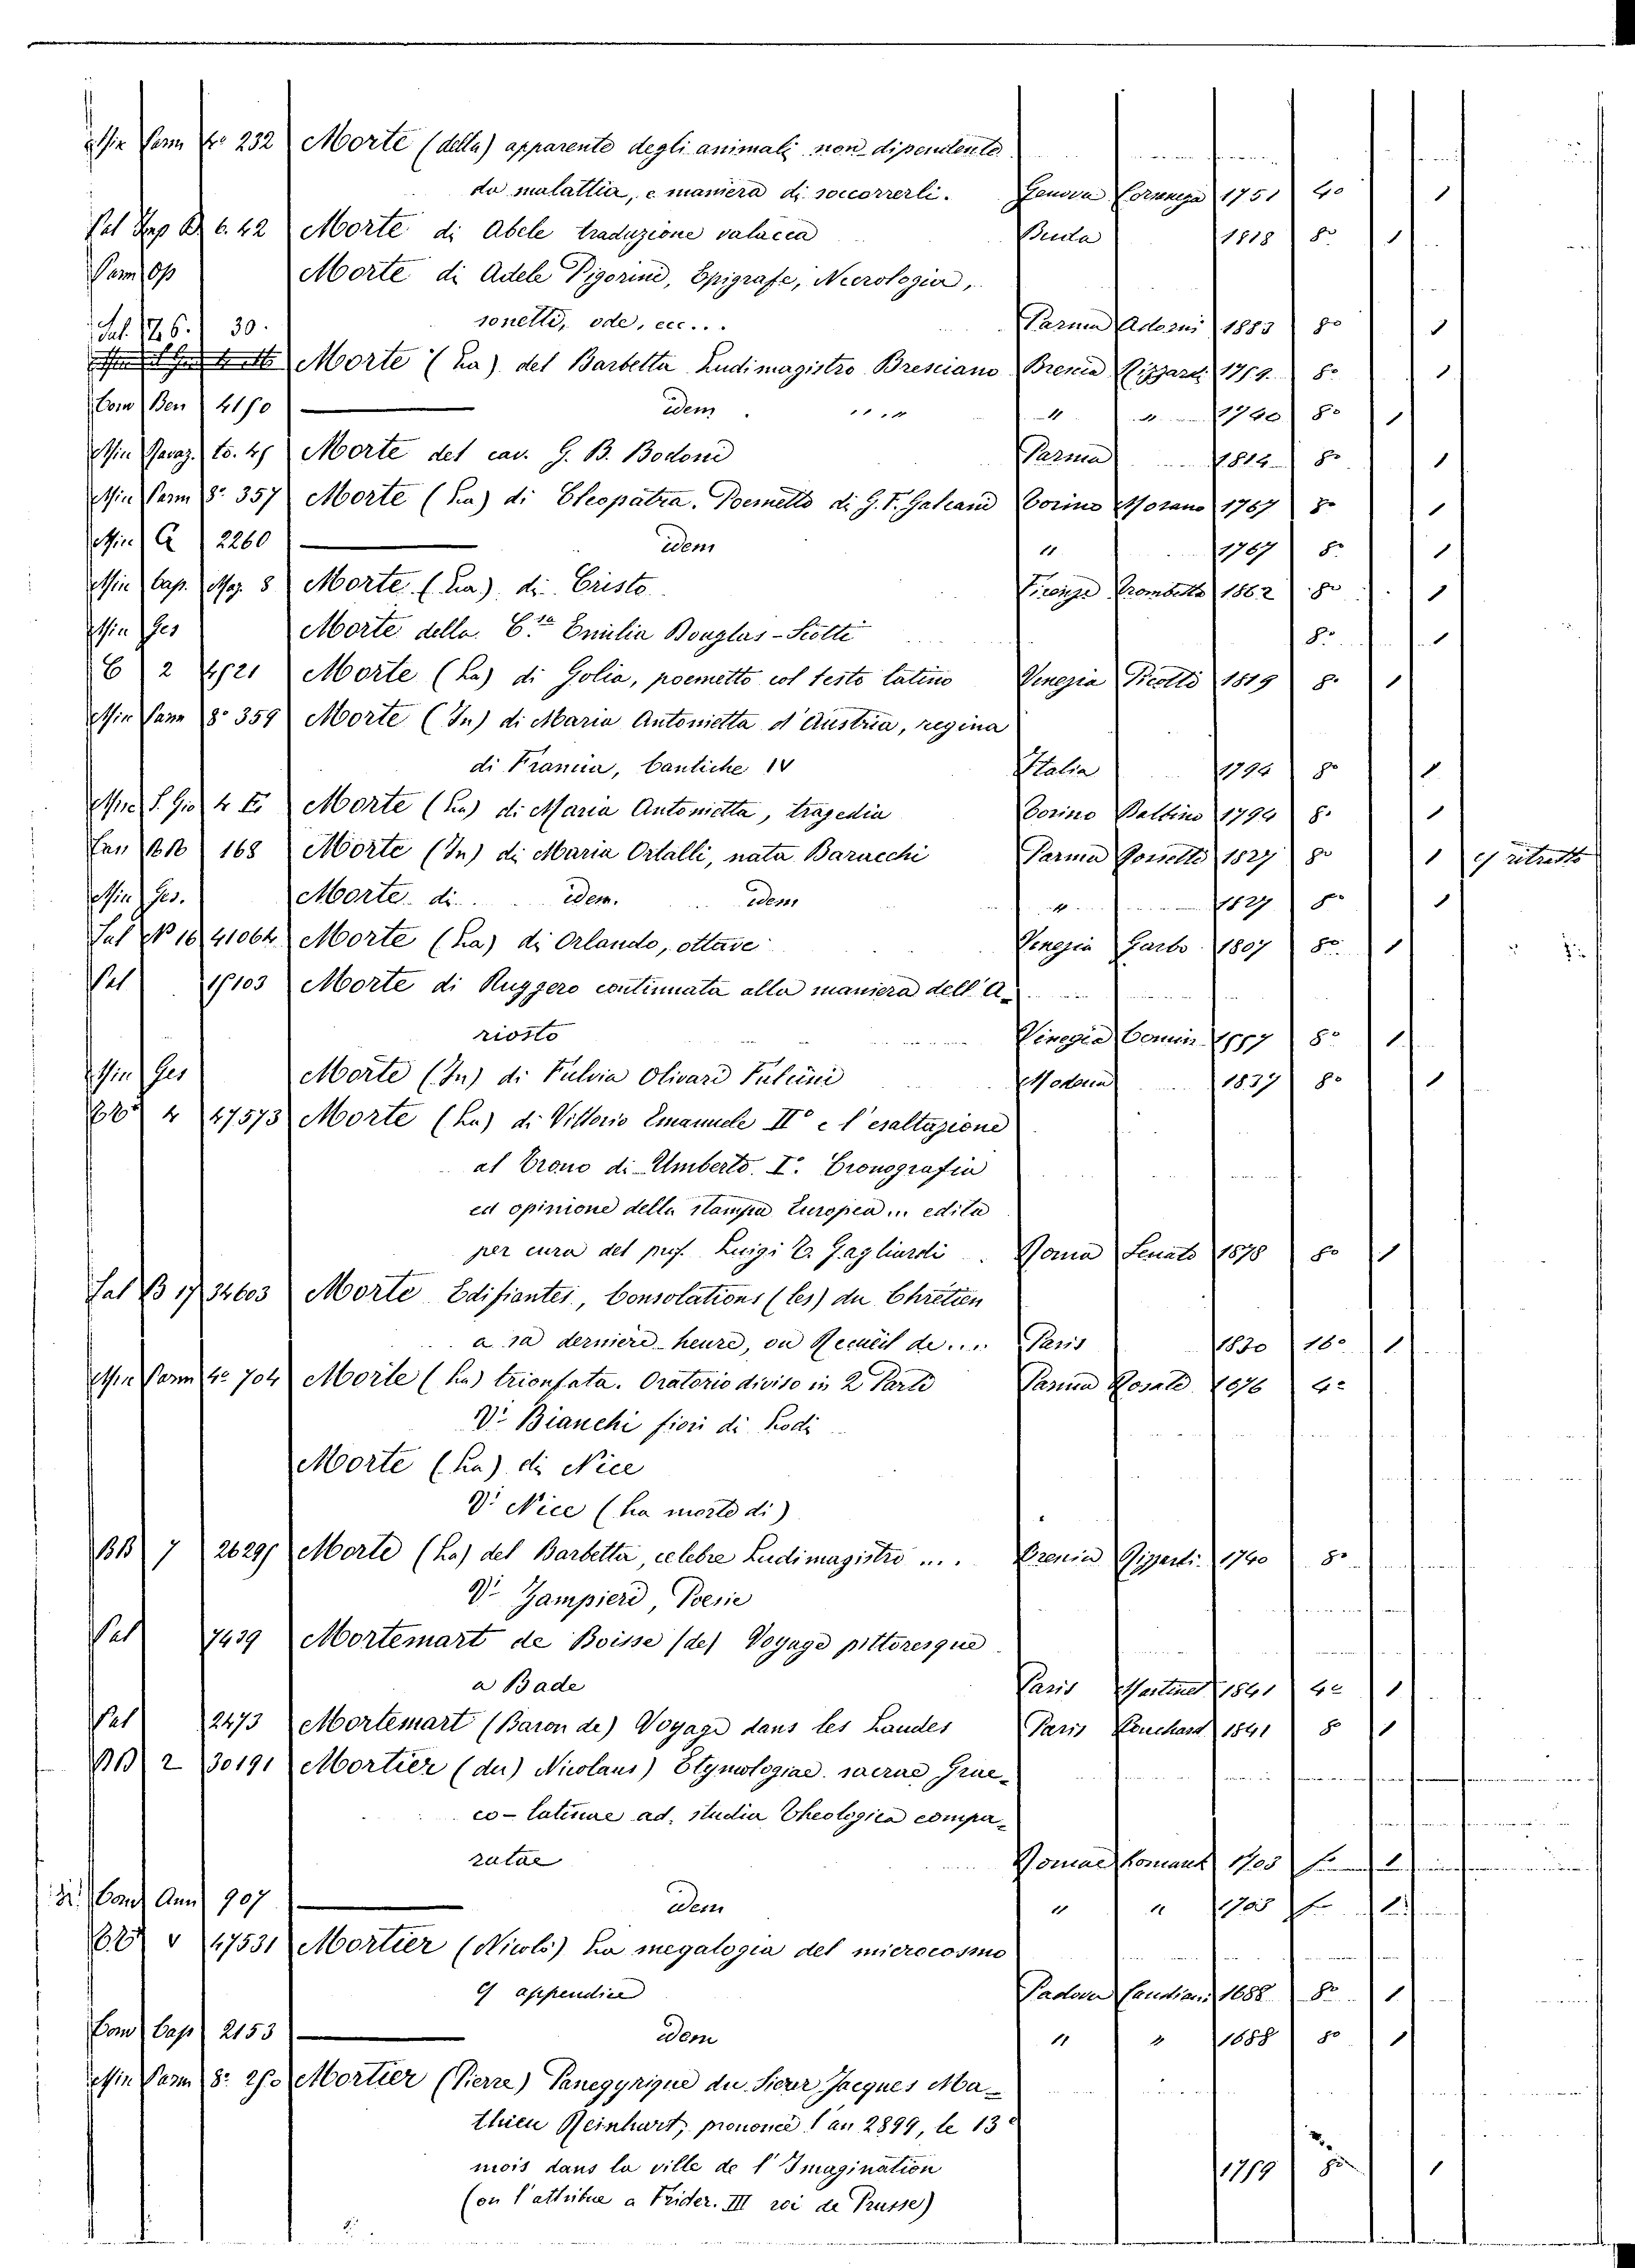 Min Parm 4º 232 Morte (della) apparente degli animali non dipendente
da malattia, e maniera di soccorrerli. Genova 1751 4º 1
Pal 6. 42 Morte di Abele traduzione valacca Buda 1818 8º 1
Parm Op Morte di Adele Pigorini, Epigrafe, Necrologia,
sonetti, ode, ecc... Parma Adorni 1883 8º 1
Sal. 30.
Morte (La) del Barbetta Ludimagistro Bresciano Brescia Rizzardi 8º 1
Com Ben idem " " 1740 8º 1
Min Morte del cav. G. B. Bodoni Parma 1814 8º 1
Min Parm 8º 357 Morte (La) di Cleopatra. Poemetto di G. F. Galeani Torino Morano 1767 8º 1
Min 2260 idem " 1767 8º 1
Min Cap. Mag. 8 Morte (La) di Cristo Firenze Trombetta 1862 8º 1
Min Ges Morte della C.ssa Emilia Douglas-Scotti 8º 1
C 2 Morte (La) di Golia, poemetto col testo latino Venezia Picotti 1819 8º 1
Min Parm 8º 359 Morte (In) di Maria Antonietta d'Austria, regina
di Francia, Cantiche IV Italia 1794 8º 1
Morte (La) di Maria Antonietta, tragedia Torino Balbino 1794 8º 1
168 Morte (In) di Maria Ortalli, nata Baracchi Parma Rossetti 1827 8º 1 c/ ritratto
Min Ges. Morte di idem. idem " 1827 8º 1
Sal N 16 41064 Morte (La) di Orlando, ottave Venezia Garbo 1807 8º 1
Pal 15103 Morte di Ruggero continuata alla maniera dell'A-
riosto Vinegia Comin 1557 8º 1
Min Ges Morte (In) di Fulvia Olivari Tulini Modena 1837 8º 1
4 47573 Morte (La) di Vittorio Emanuele IIº e l'esaltazione
al Trono di Umberto Iº. Cronografia
ed opinione della stampa Europea... edita
per cura del prof. Luigi Gagliardi Roma Senato 1878 8º 1
Sal B 17 34603 Morte Edifiantes, Consolations (les) du Chrétien
a sa derniere heure, ou Recueil de.... Paris 1830 16º 1
Min Parm 4º 704 Morte (La) trionfata. Oratorio diviso in 2 Parti Parma Rosati 1676 4º
Vº Bianchi fiori di Lodi
Morte (La) di Nice
Vº Nice (La morte di)
BB 7 26295 Morte (La) del Barbetta, celebre Ludimagistro .... Brescia Rizzardi 1740 8º
Vº Zampieri, Poesie
Pal 7439 Mortemart de Boisse (de) Voyage pittoresque
a Bade Paris Martinet 1841 4º 1
Pal 2473 Mortemart (Baron de) Voyage dans les Landes Paris Bouchard 1841 8º 1
BB 2 30191 Mortier (du) Nicolaus) Etymologiae sacrae Grae-
co-latinae ad. studia Theologica compa-
ratae Romae Komarek 1703 fº 1
Cons Ann 907 idem " " 1703 fº 1
v 47531 Mortier (Nicolò) La megalogia del microcosmo
c/ appendice Padova 1688 8º 1
Com Cap 2153 idem " " 1688 8º 1
Min Parm 8º Mortier (Pierre) Panegyrique du Sieur Jacques Ma-
thieu Reinhart, prononcé l'an 2899, le 13º
mois dans la ville de l'Imagination
(on l'attribue a Frider. III roi de Prusse) 1759 8º 1